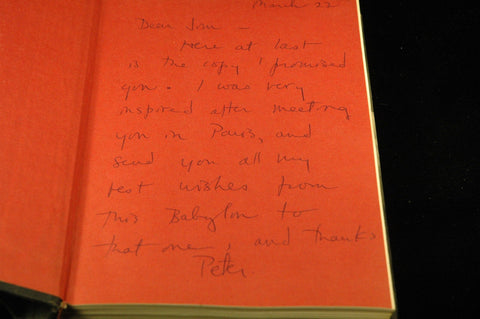 March 22
Dear Jim -
Here at last
is the copy I promised
you. I was very
inspired after meeting
you in Paris, and
send you all my
best wishes from
this Babylon to
that one, and thanks
Peter